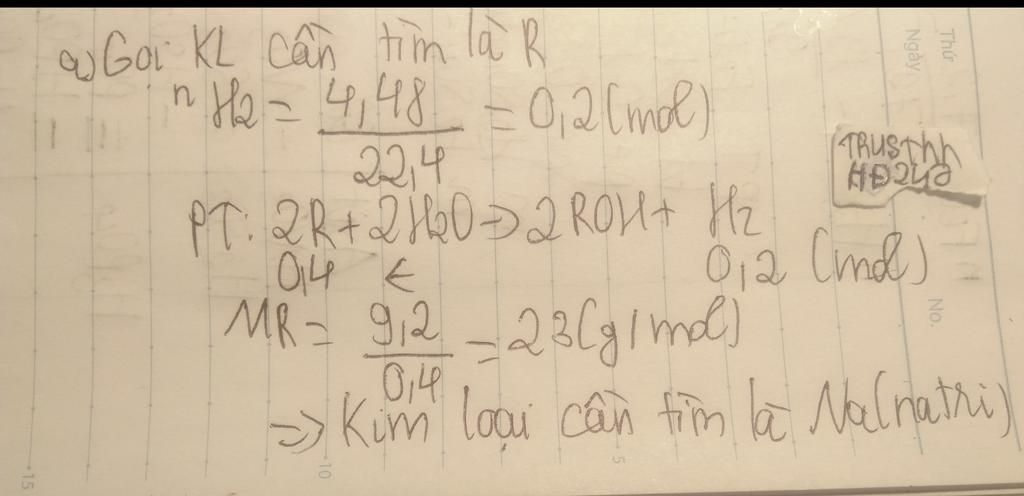 a) Gọi KL cần tìm là R
nH2 = 4,48 / 22,4 = 0,2 (mol)
TRUSthh
HĐ24g
PT: 2R + 2H2O → 2ROH + H2
0,4 ← 0,2 (mol)
MR = 9,2 / 0,4 = 23 (g/mol)
⇒ Kim loại cần tìm là Na (natri)
Thứ
Ngày
No.
15
10
5